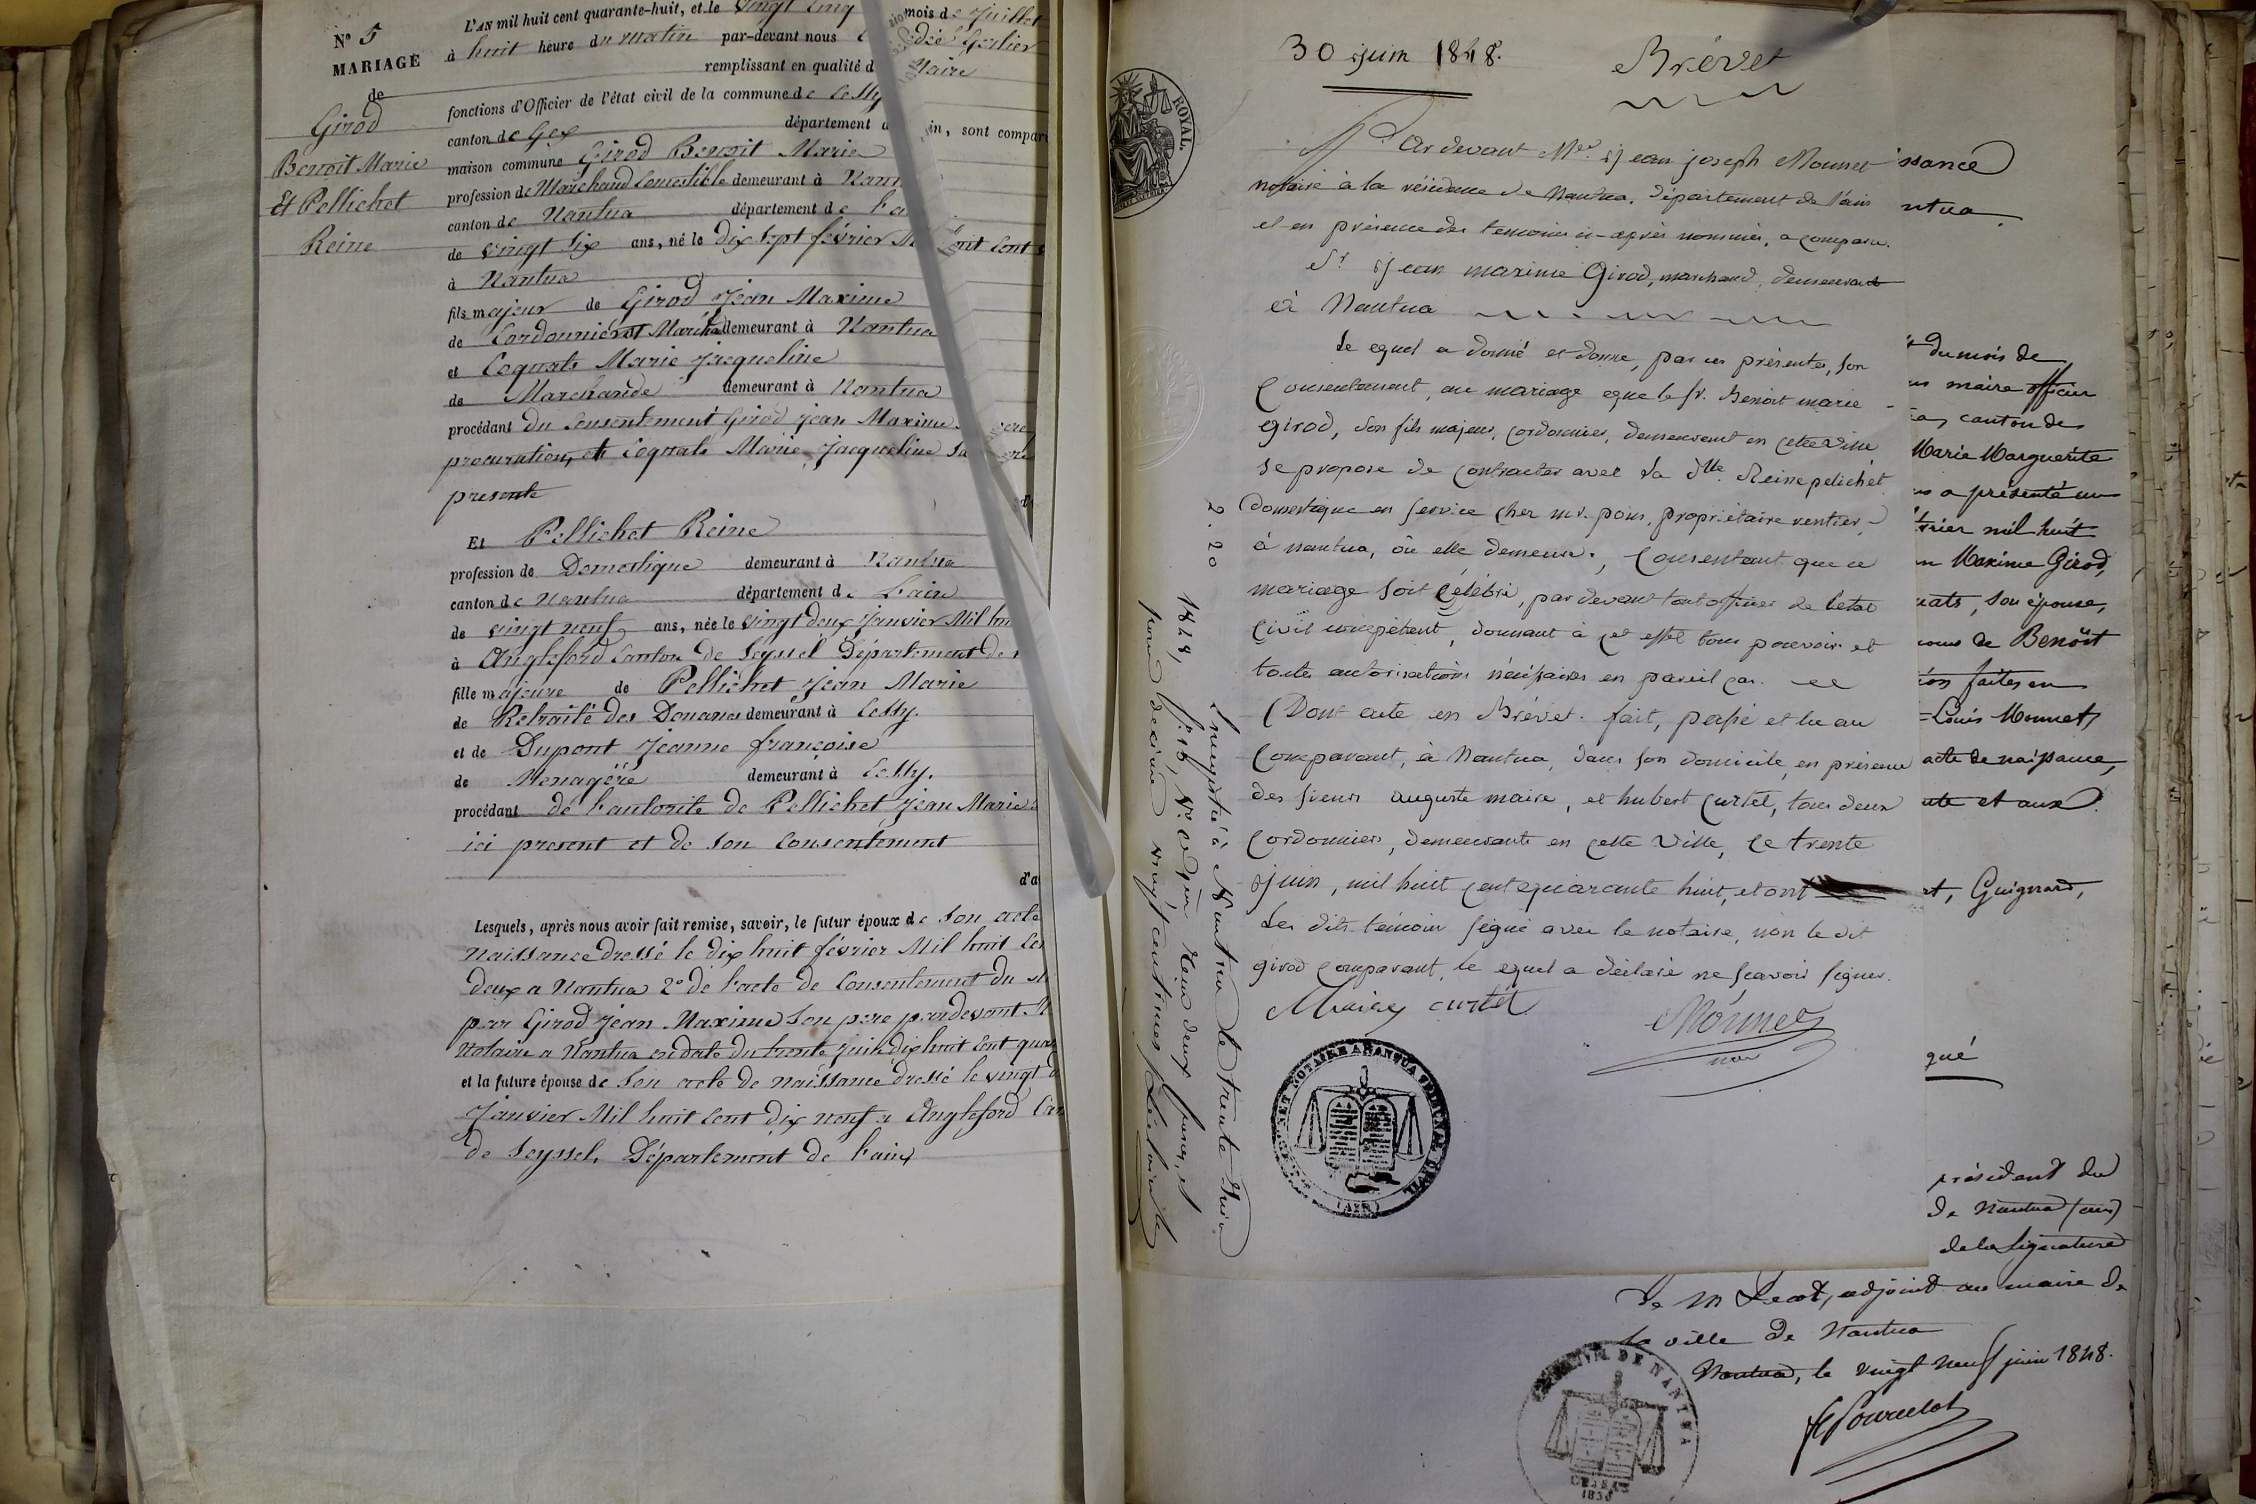 L'AN mil huit cent quarante-huit, et le vingt cinq mois de Juillet
N° 5
MARIAGE
de
Girod
Benoit Marie
Et Pellichet
Reine
à huit heure du matin par-devant nous
remplissant en qualité d Maire
fonctions d'Officier de l'état civil de la commune de Cessy
canton de Gex département in, sont compar
maison commune Girod Benoit Marie
profession de Marchand Comestible demeurant à Nant
canton de Nantua département de l'a
de vingt six ans, né le dix sept février M
à Nantua
fils majeur de Girod Jean Maxime
de Cordonnier et Marcha demeurant à Nantua
et Coquats Marie Jacqueline
de Marchande demeurant à Nantua
procédant du Consentement Girod Jean Maxime
procuration, et Coquats Marie Jacqueline sa
presente
Et Pellichet Reine
profession de Domestique demeurant à Nantua
canton de Nantua département de l'ain
de vingt neuf ans, née le vingt deux Janvier Mil hui
à Angleford Canton de Seyssel Département de
fille majeure de Pellichet Jean Marie
de Retraité des Douanes demeurant à Cessy.
et de Dupont Jeanne françoise
de Menagère demeurant à Cessy.
procédant de l'autorité de Pellichet Jean Marie
ici present et de son Consentement
d'a
Lesquels, après nous avoir fait remise, savoir, le futur époux de son acte
Naissance dressé le dix huit février Mil huit Cen
deux a Nantua 2° de l'acte de Consentement du
par Girod Jean Maxime son pere pardevant M
Notaire a Nantua en date du trente Juin dix huit Cent qua
et la future épouse de son acte de naissance dressé le vingt d
Janvier Mil huit Cent dix neuf a Angleford Can
de Seyssel, Département de l'ain
30 juin 1848.
Brévet
ROYAL.
Par devant Me. Jean joseph Mounet
notaire à la résidence de Nantua, département de l'ain
et en présence des temoins ci-après nommés, a comparu
Sr Jean maxime Girod, marchand, demeurant
à Nantua
Le equel a donné et donne, par ces présentes, son
Consentement, au mariage eque le sr. Benoit marie
girod, son fils majeur, cordonnier, demeurant en cette ville
se propose de contracter avec la dlle. Reine pelichet
domestique en service cher mr. pois, propriétaire rentier,
à nantua, où elle demeure, Consentant que ce
mariage soit célébré, par devant tout officier de l'etat
Civil compétent, donnant à cet effet tous pouvoir et
toutes autorisations nécéssaires en pareil cas.
Dont acte en Brévet. fait, passé et lu au
Comparant, à Nantua, dans son domicile, en présence
des sieurs auguste maire, et hubert Curtet, tous deux
cordonniers, demeurants en cette ville, le trente
juin, mil huit cent equarante huit, et ont
les dits témoins signé avec le notaire, non le dit
girod comparant, le equel a déclaré ne scavoir signer.
Maire curtet
Mounet
not
2.20
Enregistré à Nantua le trente Juin
1848,
pour decime vingt centimes
NOTAIRE A NANTUA TRIBUNAL CIVIL
(AIN)
issance
ntua
du mois de
maire officier
canton de
Marie Marguerite
a présenté un
vrier mil huit
n Maxime Girod,
uats, son épouse,
noms de Benoît
ion faites en
Louis Mounet,
acte de naissance,
ute et aux
et, Guignard,
qué
président du
de Nantua (ain)
de la signature
de M adjoint au maire de
la ville de Nantua
Nantua, le vingt neuf juin 1848.
DE NANTUA